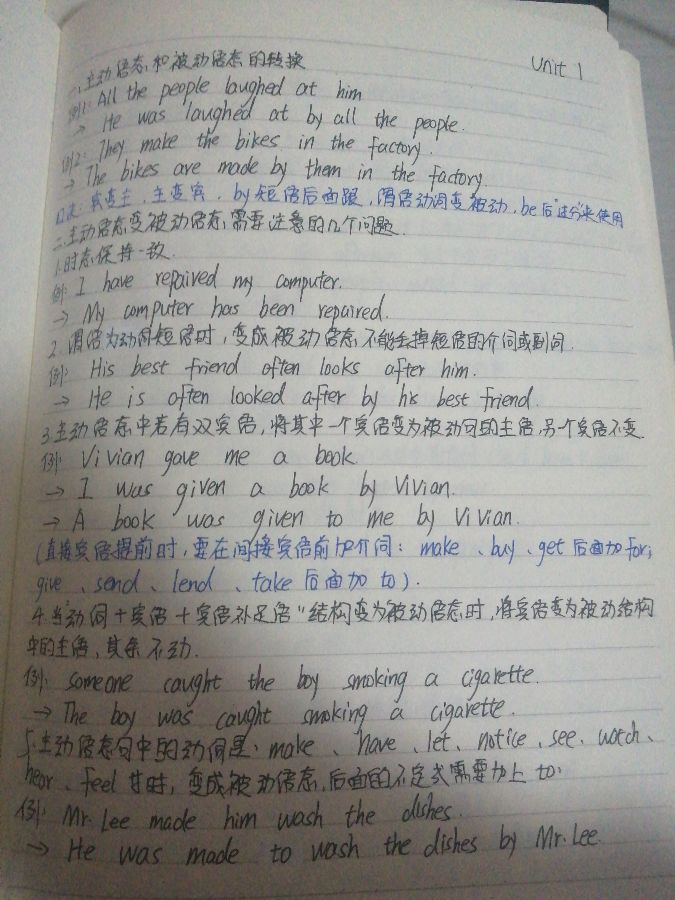 Unit 1
一、主动语态和被动语态的转换
例1: All the people laughed at him
→ He was laughed at by all the people.
例2: They make the bikes in the factory.
→ The bikes are made by them in the factory.
口诀: 宾变主, 主变宾, by短语后面跟, 谓语动词变被动, be后"过分"来使用
二、主动语态变被动语态需要注意的几个问题.
1.时态保持一致.
例: I have repaired my computer.
→ My computer has been repaired.
2. 谓语为动词短语时, 变成被动语态不能去掉短语的介词或副词.
例: His best friend often looks after him.
→ He is often looked after by his best friend.
3.主动语态中若有双宾语, 将其中一个宾语变为被动句的主语, 另一个宾语不变
例: Vivian gave me a book.
→ I was given a book by Vivian.
→ A book was given to me by Vivian.
(直接宾语提前时, 要在间接宾语前加介词: make、buy、get 后面加 for;
give、send、lend、take 后面加 to).
4.当"动词+宾语+宾语补足语"结构变为被动语态时, 将宾语变为被动结构
中的主语, 其余不动.
例: Someone caught the boy smoking a cigarette.
→ The boy was caught smoking a cigarette.
5.主动语态句中的动词是: make、have、let、notice、see、watch、
hear、feel 等时, 变成被动语态, 后面的不定式需要加上 to.
例: Mr. Lee made him wash the dishes.
→ He was made to wash the dishes by Mr. Lee.